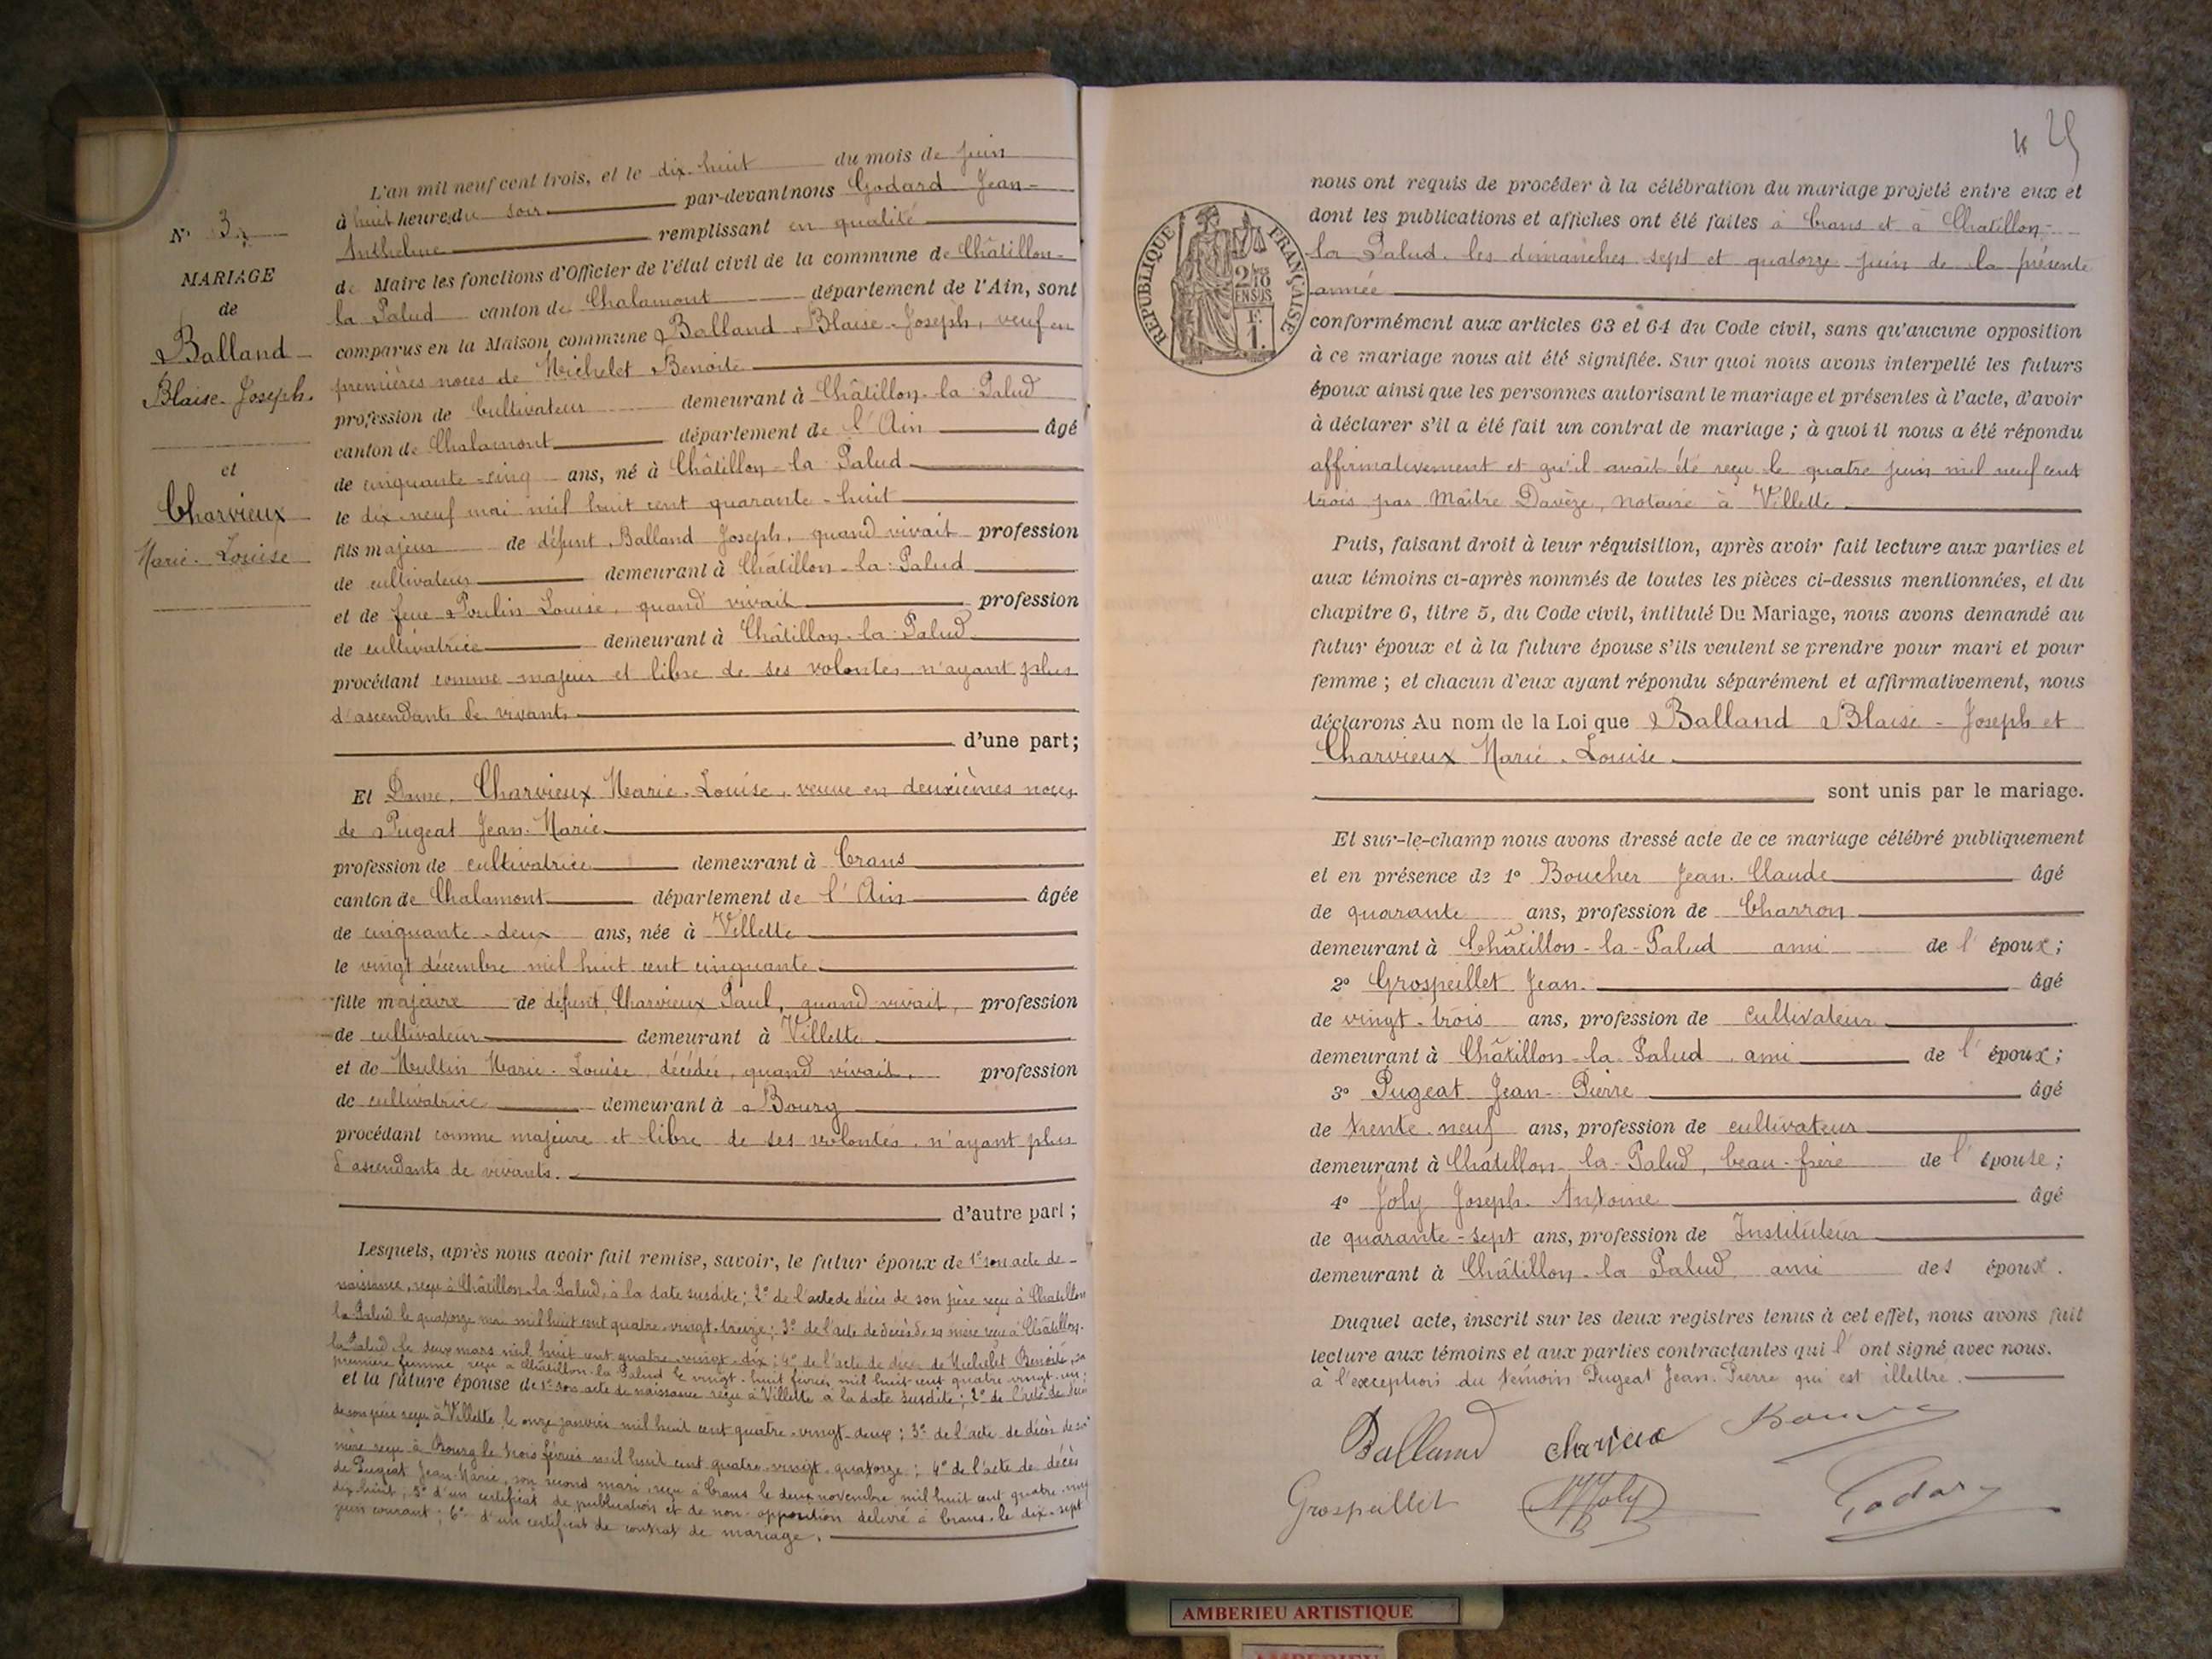 N° 3.
MARIAGE
de
Balland
Blaise-Joseph.
et
Charvieux
Marie-Louise
L'an mil neuf cent trois, et le dix-huit du mois de juin
à huit heures du soir par-devant nous Godard Jean-
Anthelme remplissant en qualité
de Maire les fonctions d'Officier de l'état civil de la commune de Châtillon-
la Palud canton de Chalamont département de l'Ain, sont
comparus en la Maison commune Balland Blaise-Joseph, veuf en
premières noces de Michelet Benoite
profession de Cultivateur demeurant à Châtillon-la-Palud
canton de Chalamont département de l'Ain âgé
de cinquante-cinq ans, né à Châtillon-la-Palud
le dix-neuf mai mil huit cent quarante-huit
fils majeur de défunt Balland Joseph, quand vivait profession
de cultivateur demeurant à Châtillon-la-Palud
et de feue Poulin Louise, quand vivait profession
de cultivatrice demeurant à Châtillon-la-Palud
procédant comme majeur et libre de ses volontés n'ayant plus
d'ascendants de vivants
d'une part;
Et Dame Charvieux Marie-Louise, veuve en deuxièmes noces
de Pugeat Jean-Marie
profession de cultivatrice demeurant à Crans
canton de Chalamont département de l'Ain âgée
de cinquante-deux ans, née à Villette
le vingt décembre mil huit cent cinquante
fille majeure de défunt Charvieux Paul, quand vivait, profession
de cultivateur demeurant à Villette
et de Multin Marie-Louise, décédée, quand vivait, profession
de cultivatrice demeurant à Bourg
procédant comme majeure et libre de ses volontés, n'ayant plus
d'ascendants de vivants.
d'autre part;
Lesquels, après nous avoir fait remise, savoir, le futur époux de 1° son acte de
naissance, reçu à Châtillon-la-Palud, à la date susdite; 2° de l'acte de décès de son père reçu à Chatillon
la-Palud le quatorze mai mil huit cent quatre-vingt-treize; 3° de l'acte de décès de sa mère reçu à Châtillon-
la-Palud le deux mars mil huit cent quatre-vingt-dix; 4° de l'acte de décès de Michelet Benoite, sa
première femme reçu à Châtillon-la-Palud le vingt-huit février mil huit cent quatre vingt-un;
et la future épouse de 1° son acte de naissance reçu à Villette à la date susdite; 2° de l'acte de décès
de son père reçu à Villette le onze janvier mil huit cent quatre-vingt-deux; 3° de l'acte de décès de sa
mère reçu à Bourg le trois février mil huit cent quatre-vingt-quatorze; 4° de l'acte de décès
de Pugeat Jean-Marie, son second mari, reçu à Crans le deux novembre mil huit cent quatre-vingt
dix-huit; 5° d'un certificat de publication et de non-opposition délivré à Crans le dix-sept
juin courant; 6° d'un certificat de contrat de mariage.
nous ont requis de procéder à la célébration du mariage projeté entre eux et
dont les publications et affiches ont été faites à Crans et à Chatillon-
la Palud, les dimanches sept et quatorze juin de la présente
année
RÉPUBLIQUE FRANÇAISE
conformément aux articles 63 et 64 du Code civil, sans qu'aucune opposition
à ce mariage nous ait été signifiée. Sur quoi nous avons interpellé les futurs
époux ainsi que les personnes autorisant le mariage et présentes à l'acte, d'avoir
à déclarer s'il a été fait un contrat de mariage; à quoi il nous a été répondu
affirmativement et qu'il avait été reçu le quatre juin mil neuf cent
trois par Maître Davèze, notaire à Villette
Puis, faisant droit à leur réquisition, après avoir fait lecture aux parties et
aux témoins ci-après nommés de toutes les pièces ci-dessus mentionnées, et du
chapitre 6, titre 5, du Code civil, intitulé Du Mariage, nous avons demandé au
futur époux et à la future épouse s'ils veulent se prendre pour mari et pour
femme; et chacun d'eux ayant répondu séparément et affirmativement, nous
déclarons Au nom de la Loi que Balland Blaise-Joseph et
Charvieux Marie-Louise
sont unis par le mariage.
Et sur-le-champ nous avons dressé acte de ce mariage célébré publiquement
et en présence de 1° Boucher Jean-Claude âgé
de quarante ans, profession de Charron
demeurant à Châtillon-la-Palud ami de l'époux;
2° Grospeillet Jean. âgé
de vingt-trois ans, profession de cultivateur
demeurant à Châtillon-la-Palud, ami de l'époux;
3° Pugeat Jean-Pierre âgé
de trente-neuf ans, profession de cultivateur
demeurant à Châtillon-la-Palud, beau-frère de l'épouse;
4° Joly Joseph-Antoine âgé
de quarante-sept ans, profession de Instituteur
demeurant à Châtillon-la Palud ami des époux.
Duquel acte, inscrit sur les deux registres tenus à cet effet, nous avons fait
lecture aux témoins et aux parties contractantes qui l'ont signé avec nous.
à l'exception du témoin Pugeat Jean-Pierre qui est illettré.
Balland
Grospeillet Joly Godard
AMBERIEU ARTISTIQUE
AMBERIEU